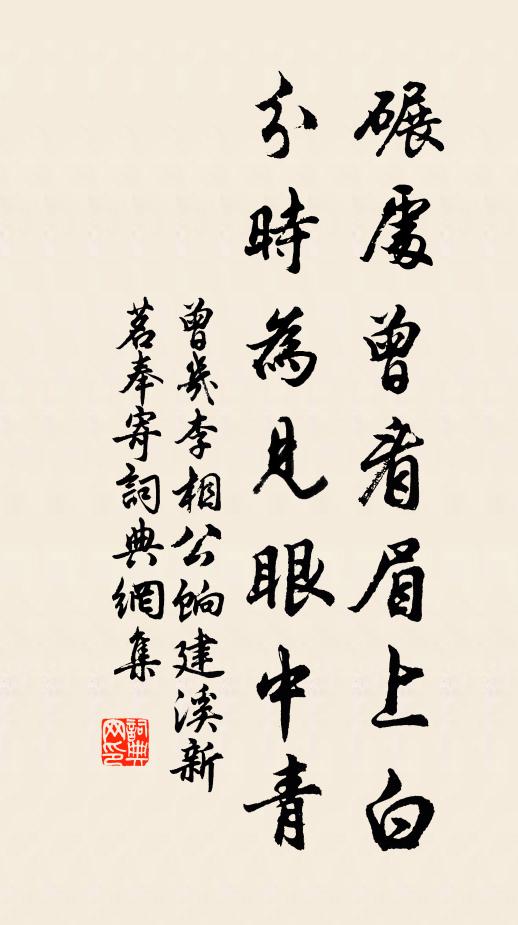 碾處曾看眉上白
分時為見眼中青
曾幾李相公餉建溪新
茗奉寄詞典網集
詞典網印